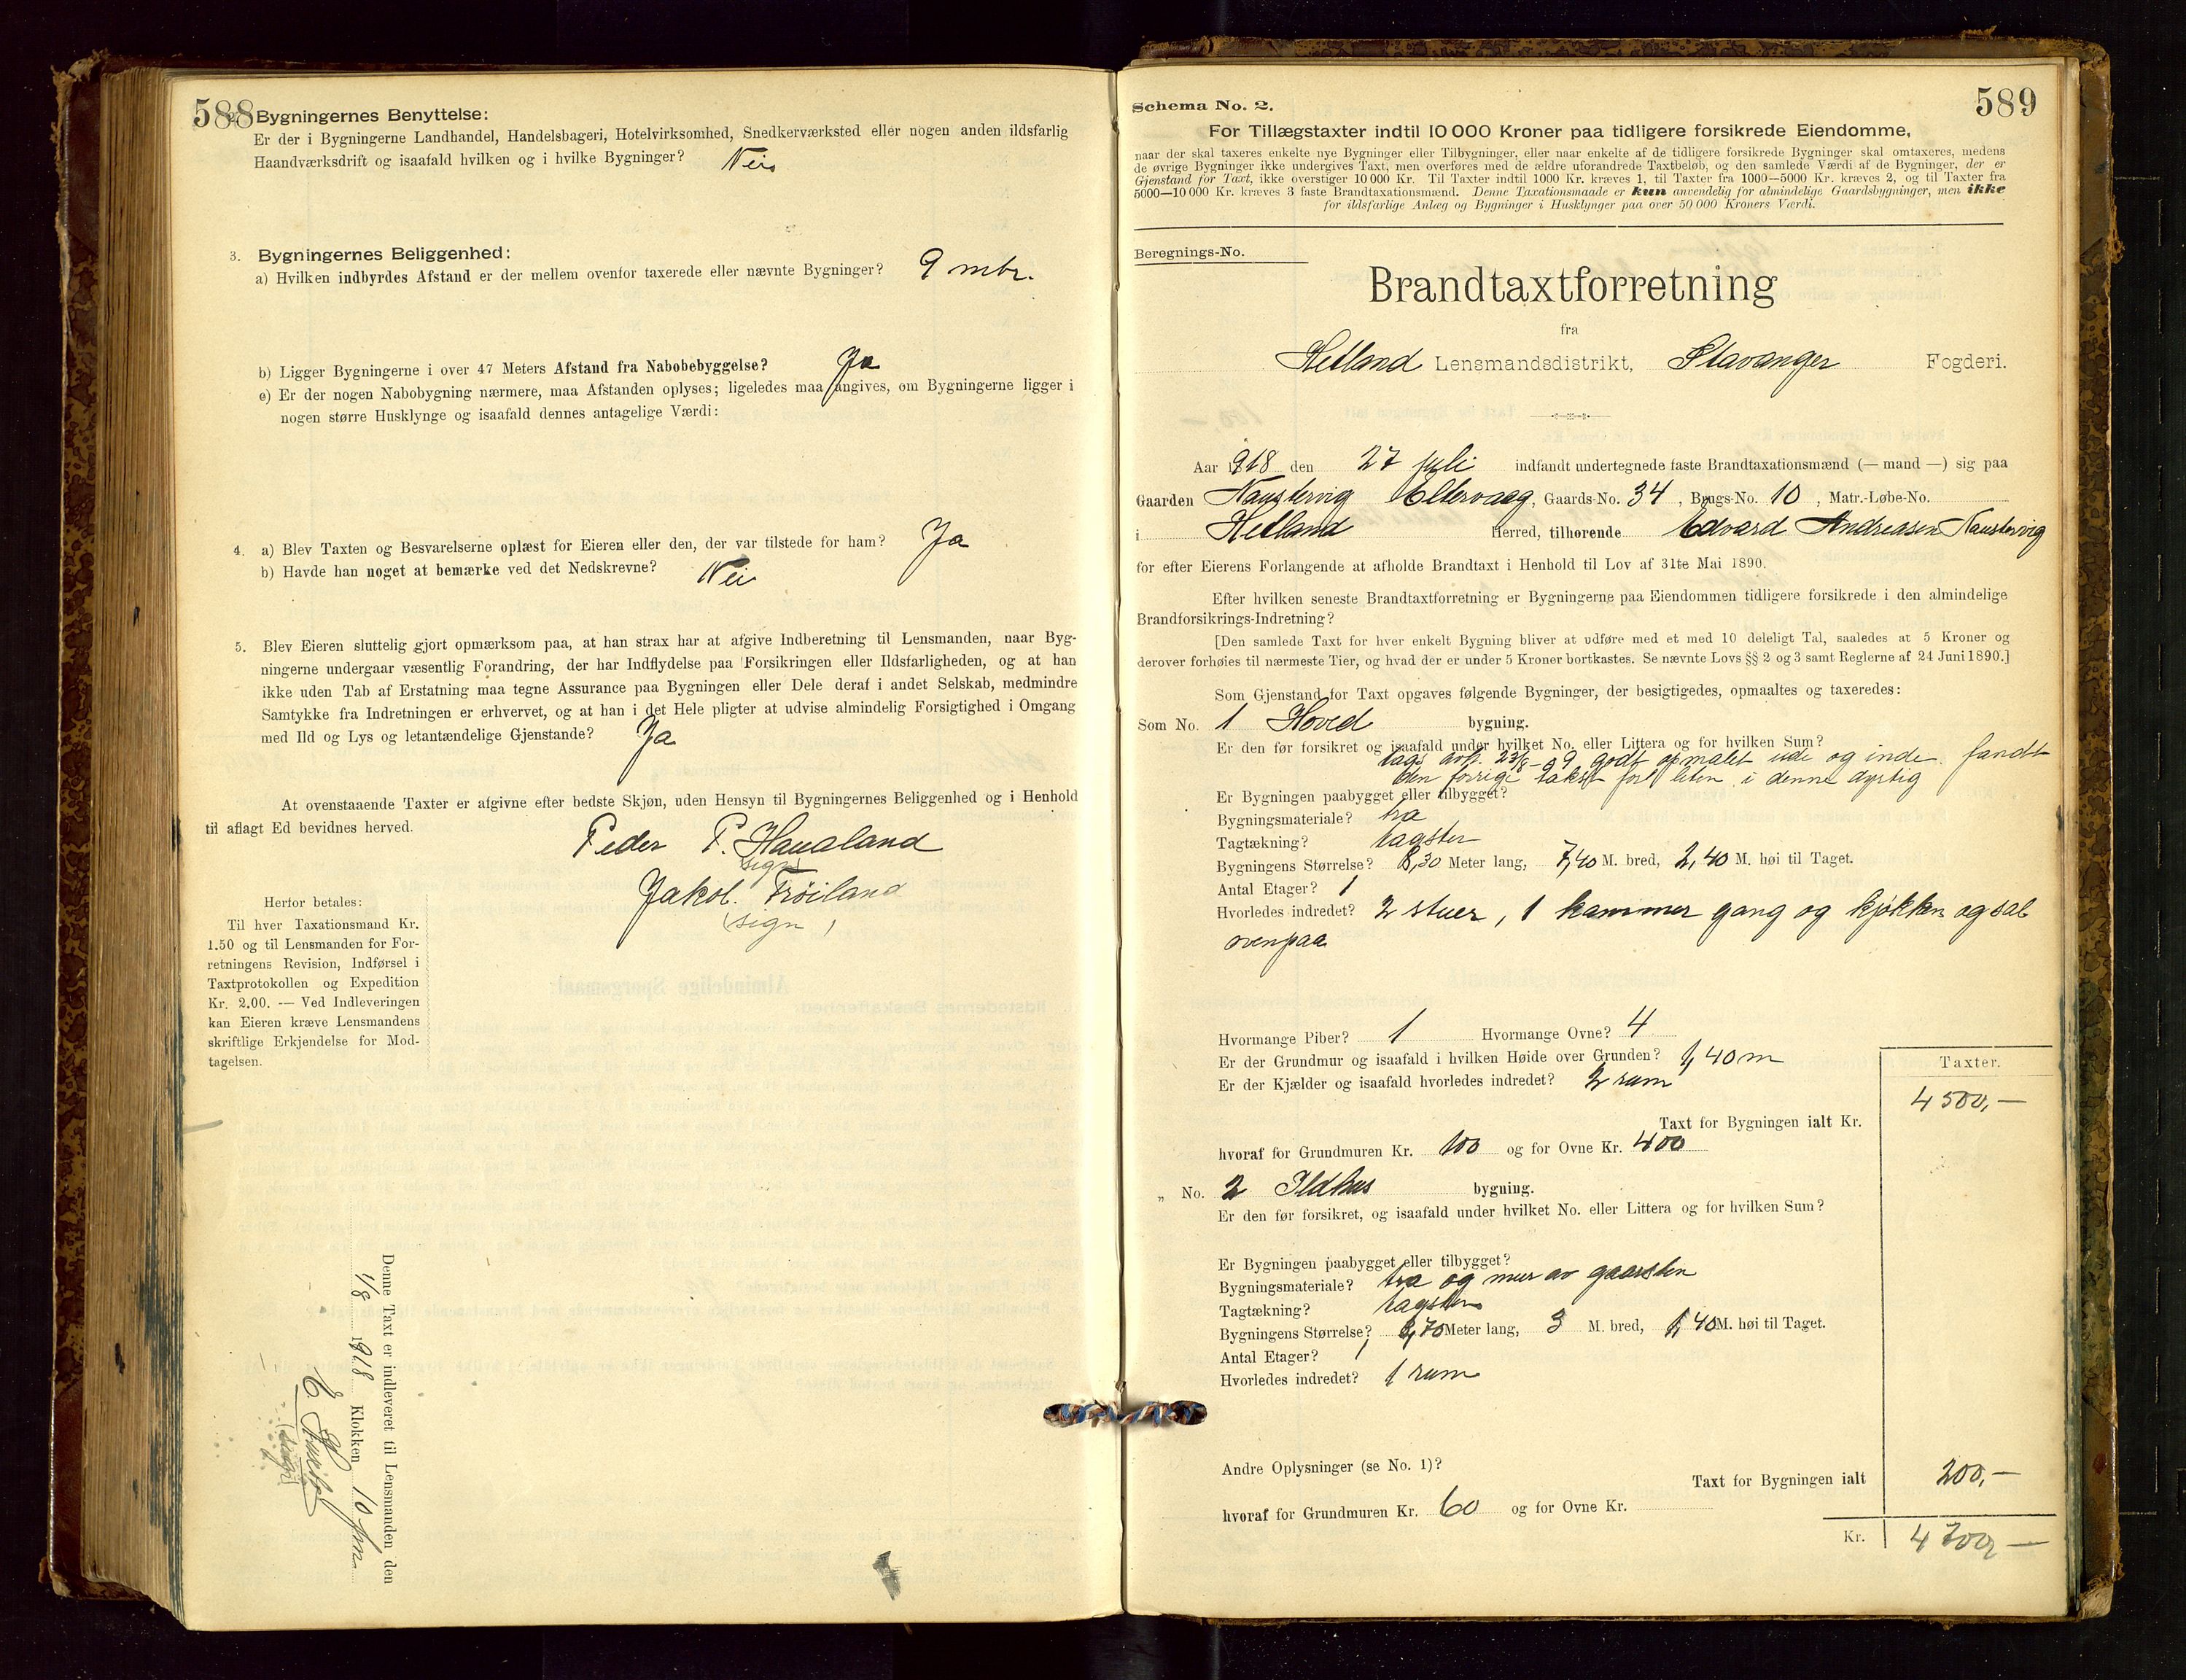 588
2. Bygningernes Benyttelse:
Er der i Bygningerne Landhandel, Handelsbageri, Hotelvirksomhed, Snedkerværksted eller nogen anden ildsfarlig
Haandværksdrift og isaafald hvilken og i hvilke Bygninger? Nei
3. Bygningernes Beliggenhed:
a) Hvilken indbyrdes Afstand er der mellem ovenfor taxerede eller nævnte Bygninger? 9 mtr.
b) Ligger Bygningerne i over 47 Meters Afstand fra Nabobebyggelse? Ja
c) Er der nogen Nabobygning nærmere, maa Afstanden oplyses; ligeledes maa angives, om Bygningerne ligger i
nogen større Husklynge og isaafald dennes antagelige Værdi:
4. a) Blev Taxten og Besvarelserne oplæst for Eieren eller den, der var tilstede for ham? Ja
b) Havde han noget at bemærke ved det Nedskrevne? Nei
5. Blev Eieren sluttelig gjort opmærksom paa, at han strax har at afgive Indberetning til Lensmanden, naar Byg-
ningerne undergaar væsentlig Forandring, der har Indflydelse paa Forsikringen eller Ildsfarligheden, og at han
ikke uden Tab af Erstatning maa tegne Assurance paa Bygningen eller Dele deraf i andet Selskab, medmindre
Samtykke fra Indretningen er erhvervet, og at han i det Hele pligter at udvise almindelig Forsigtighed i Omgang
med Ild og Lys og letantændelige Gjenstande? Ja
At ovenstaaende Taxter er afgivne efter bedste Skjøn, uden Hensyn til Bygningernes Beliggenhed og i Henhold
til aflagt Ed bevidnes herved.
Peder P. Haualand
sign
Jakob Trøiland
sign
Herfor betales:
Til hver Taxationsmand Kr.
1.50 og til Lensmanden for For-
retningens Revision, Indførsel i
Taxtprotokollen og Expedition
Kr. 2.00. — Ved Indleveringen
kan Eieren kræve Lensmandens
skriftlige Erkjendelse for Mod-
tagelsen.
Denne Taxt er indleveret til Lensmanden den
1/8 1918 Klokken 10 fm.
sign
589
Schema No. 2.
For Tillægstaxter indtil 10 000 Kroner paa tidligere forsikrede Eiendomme,
naar der skal taxeres enkelte nye Bygninger eller Tilbygninger, eller naar enkelte af de tidligere forsikrede Bygninger skal omtaxeres, medens
de øvrige Bygninger ikke undergives Taxt, men overføres med de ældre uforandrede Taxtbeløb, og den samlede Værdi af de Bygninger, der er
Gjenstand for Taxt, ikke overstiger 10 000 Kr. Til Taxter indtil 1000 Kr. kræves 1, til Taxter fra 1000—5000 Kr. kræves 2, og til Taxter fra
5000—10 000 Kr. kræves 3 faste Brandtaxationsmænd. Denne Taxationsmaade er kun anvendelig for almindelige Gaardsbygninger, men ikke
for ildsfarlige Anlæg og Bygninger i Husklynger paa over 50 000 Kroners Værdi.
Beregnings-No.
Brandtaxtforretning
fra
Hetland Lensmandsdistrikt, Stavanger Fogderi.
Aar 1918 den 27 juli indfandt undertegnede faste Brandtaxationsmænd (— mand —) sig paa
Gaarden Naustervig Eltervaag, Gaards-No. 34, Brugs-No. 10, Matr.-Løbe-No.
i Hetland Herred, tilhørende Edvard Andreasen Naustervig
for efter Eierens Forlangende at afholde Brandtaxt i Henhold til Lov af 31te Mai 1890.
Efter hvilken seneste Brandtaxtforretning er Bygningerne paa Eiendommen tidligere forsikrede i den almindelige
Brandforsikrings-Indretning?
[Den samlede Taxt for hver enkelt Bygning bliver at udføre med et med 10 deleligt Tal, saaledes at 5 Kroner og
derover forhøies til nærmeste Tier, og hvad der er under 5 Kroner bortkastes. Se nævnte Lovs §§ 2 og 3 samt Reglerne af 24 Juni 1890.]
Som Gjenstand for Taxt opgaves følgende Bygninger, der besigtigedes, opmaaltes og taxeredes:
Som No. 1 Hoved bygning.
Er den før forsikret og isaafald under hvilket No. eller Littera og for hvilken Sum?
23/8-09 godt opmalet ude og inde. fandt
den forrige takst for liten i denne dyrtig
Er Bygningen paabygget eller tilbygget?
Bygningsmateriale? træ
Tagtækning? tagsten
Bygningens Størrelse? 8,30 Meter lang, 7,40 M. bred, 2,40 M. høi til Taget.
Antal Etager? 1
Hvorledes indredet? 2 stuer, 1 kammer gang og kjøkken og sal
ovenpaa
Hvormange Piber? 1 Hvormange Ovne? 4
Er der Grundmur og isaafald i hvilken Høide over Grunden? 1,40 m
Er der Kjælder og isaafald hvorledes indredet? 2 rum
Taxter.
Taxt for Bygningen ialt Kr. 4500,—
hvoraf for Grundmuren Kr. 100 og for Ovne Kr. 400
„ No. 2 Ildhus bygning.
Er den før forsikret, og isaafald under hvilket No. eller Littera og for hvilken Sum?
Er Bygningen paabygget eller tilbygget?
Bygningsmateriale? træ og mur av graasten
Tagtækning? tagsten
Bygningens Størrelse? 3,70 Meter lang, 3 M. bred, 1,40 M. høi til Taget.
Antal Etager? 1
Hvorledes indredet? 1 rum
Andre Oplysninger (se No. 1)?
Taxt for Bygningen ialt 200,—
hvoraf for Grundmuren Kr. 60 og for Ovne Kr.
Kr. 4700,—